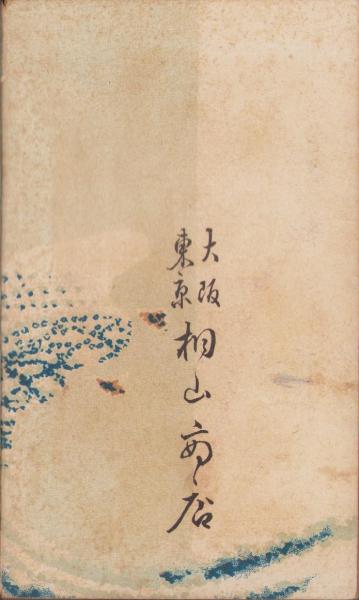 大阪
東京
桐山商店